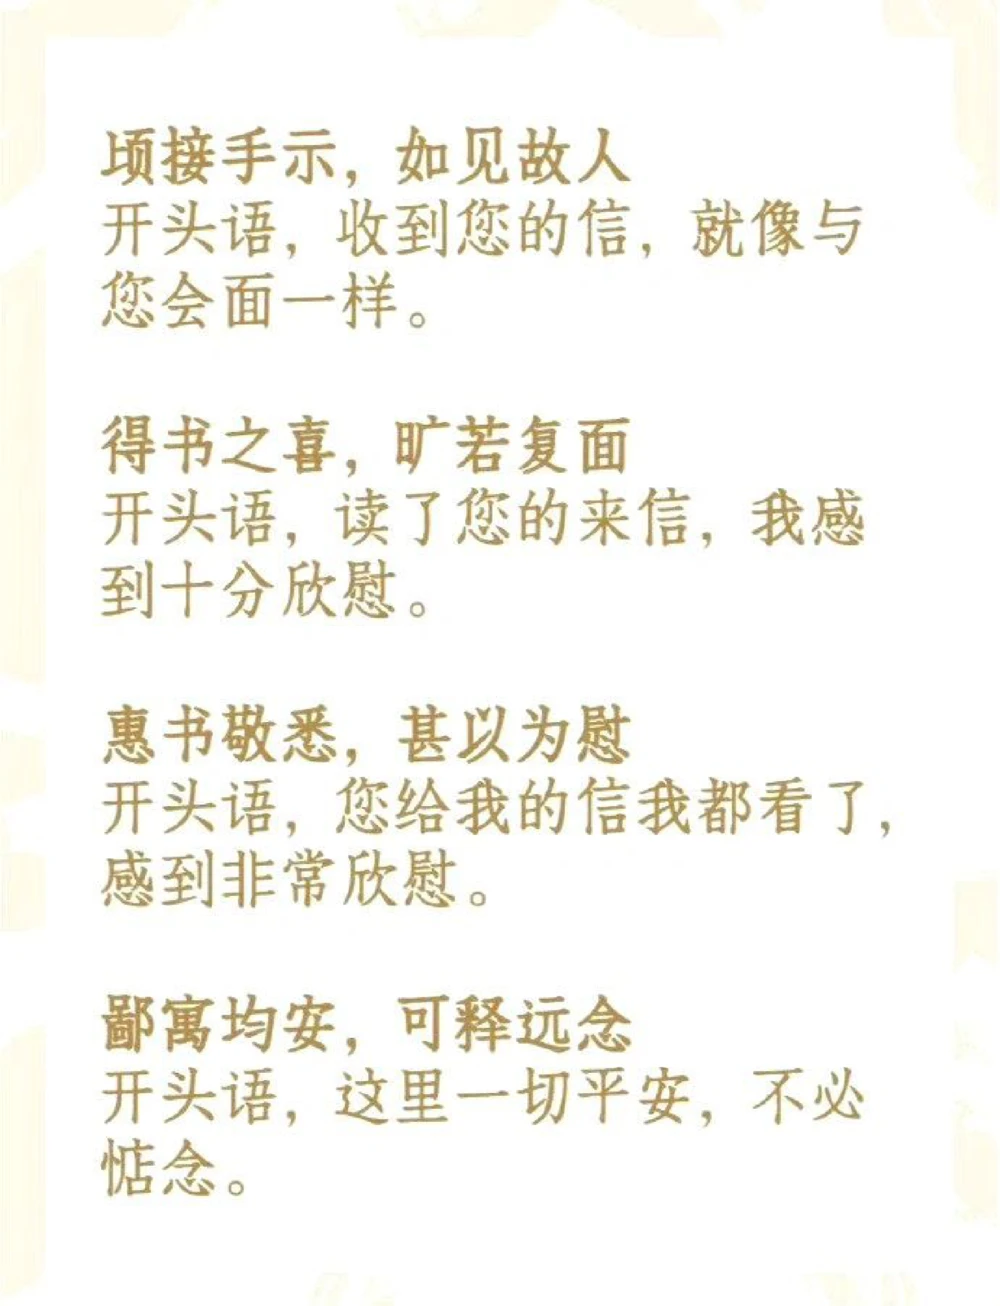 顷接手示，如见故人
开头语，收到您的信，就像与
您会面一样。
得书之喜，旷若复面
开头语，读了您的来信，我感
到十分欣慰。
惠书敬悉，甚以为慰
开头语，您给我的信我都看了，
感到非常欣慰。
鄙寓均安，可释远念
开头语，这里一切平安，不必
惦念。